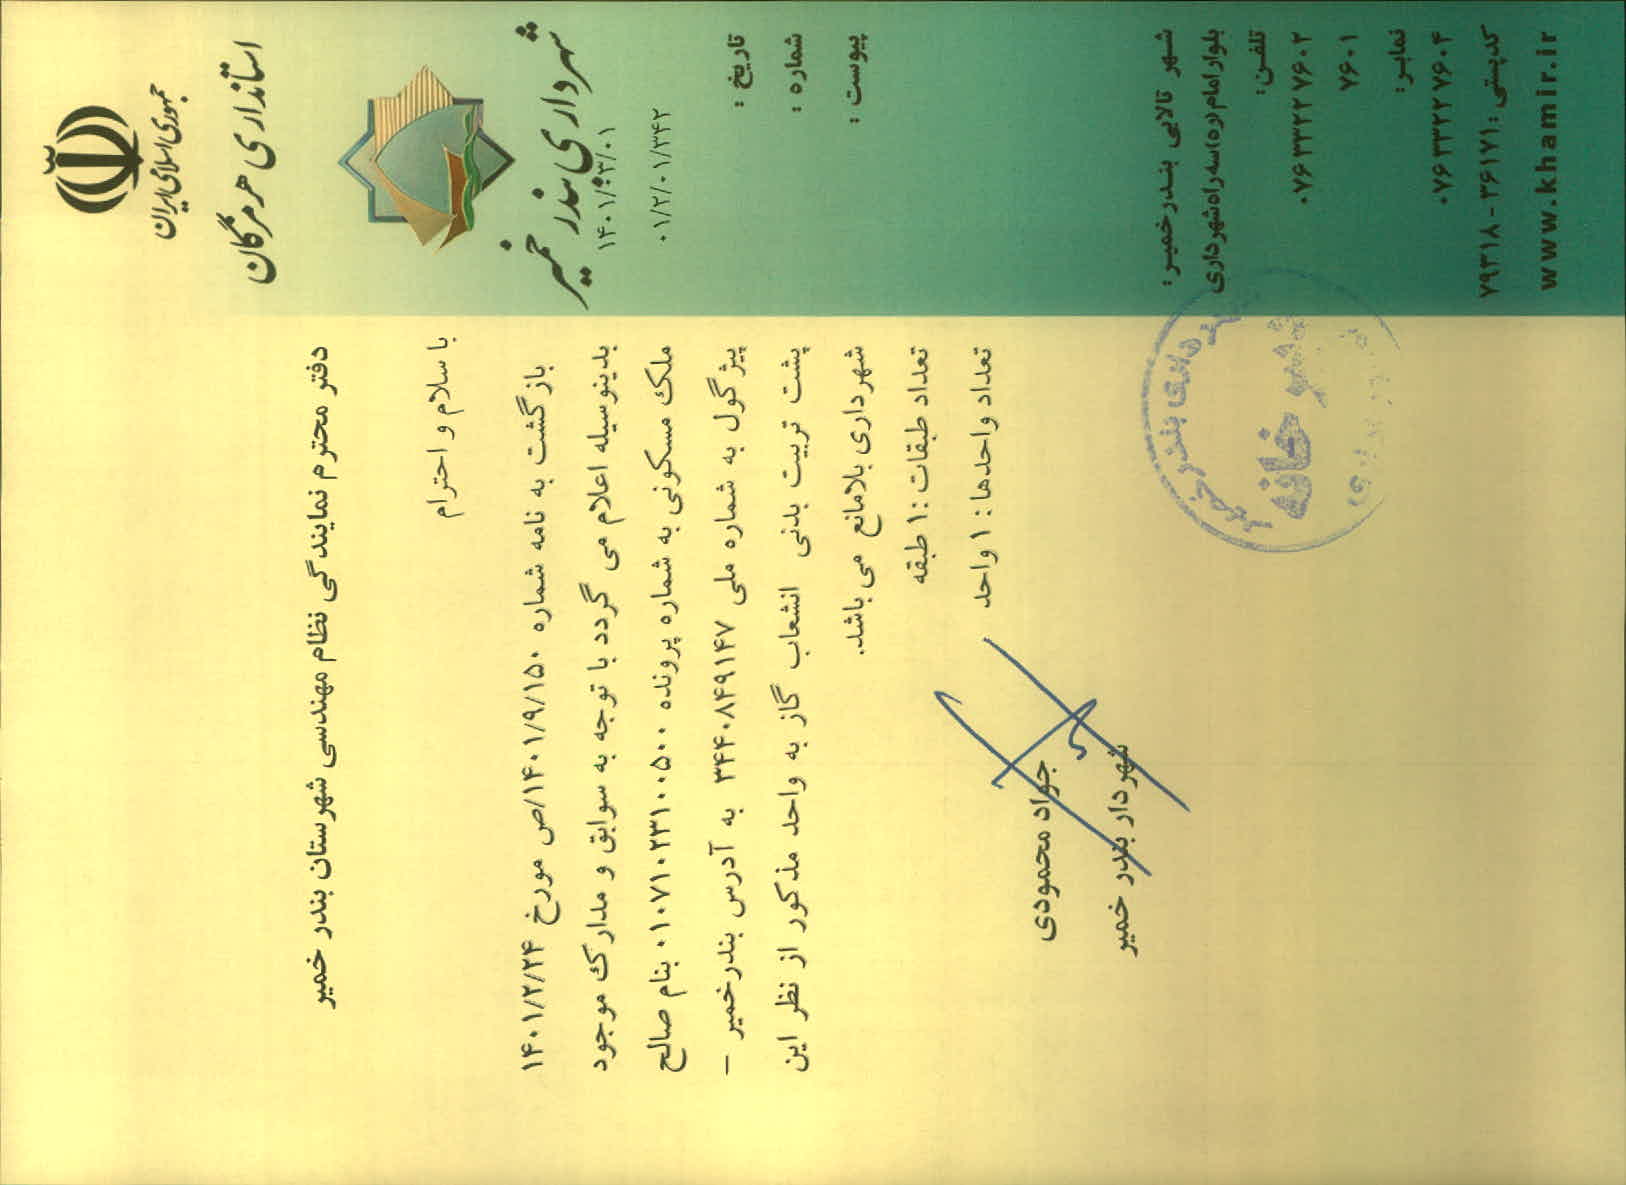 جمهوری اسلامی ایران
استانداری هرمزگان
شهرداری بندر خمیر
۱۴۰۱/۰۳/۰۱
۰۱/۲/۰۱/۳۴۲
تاریخ :
شماره :
پیوست :
دفتر محترم نمایندگی نظام مهندسی شهرستان بندر خمیر
با سلام و احترام
بازگشت به نامه شماره ۱۴۰۱/۹/۱۵۰/ص مورخ ۱۴۰۱/۲/۲۴
بدینوسیله اعلام می گردد با توجه به سوابق و مدارک موجود
ملک مسکونی به شماره پرونده ۰۱۰۷۱۰۲۳۱۰۰۵۰۰ بنام صالح
پیژگول به شماره ملی ۳۴۴۰۸۴۹۱۴۷ به آدرس بندرخمیر –
پشت تربیت بدنی انشعاب گاز به واحد مذکور از نظر این
شهرداری بلامانع می باشد.
تعداد طبقات :۱ طبقه
تعداد واحدها : ۱ واحد
جواد محمودی
شهردار بندر خمیر
شهرداری بندر خمیر
شهر تالابی بندرخمیر:
بلوار امام(ره)سه راه شهرداری
تلفن:
۰۷۶۳۳۲۲۷۶۰۲
۷۶۰۱
نمابر:
۰۷۶۳۳۲۲۷۶۰۴
کدپستی: ۳۶۱۷۱-۷۹۳۱۸
www.khamir.ir